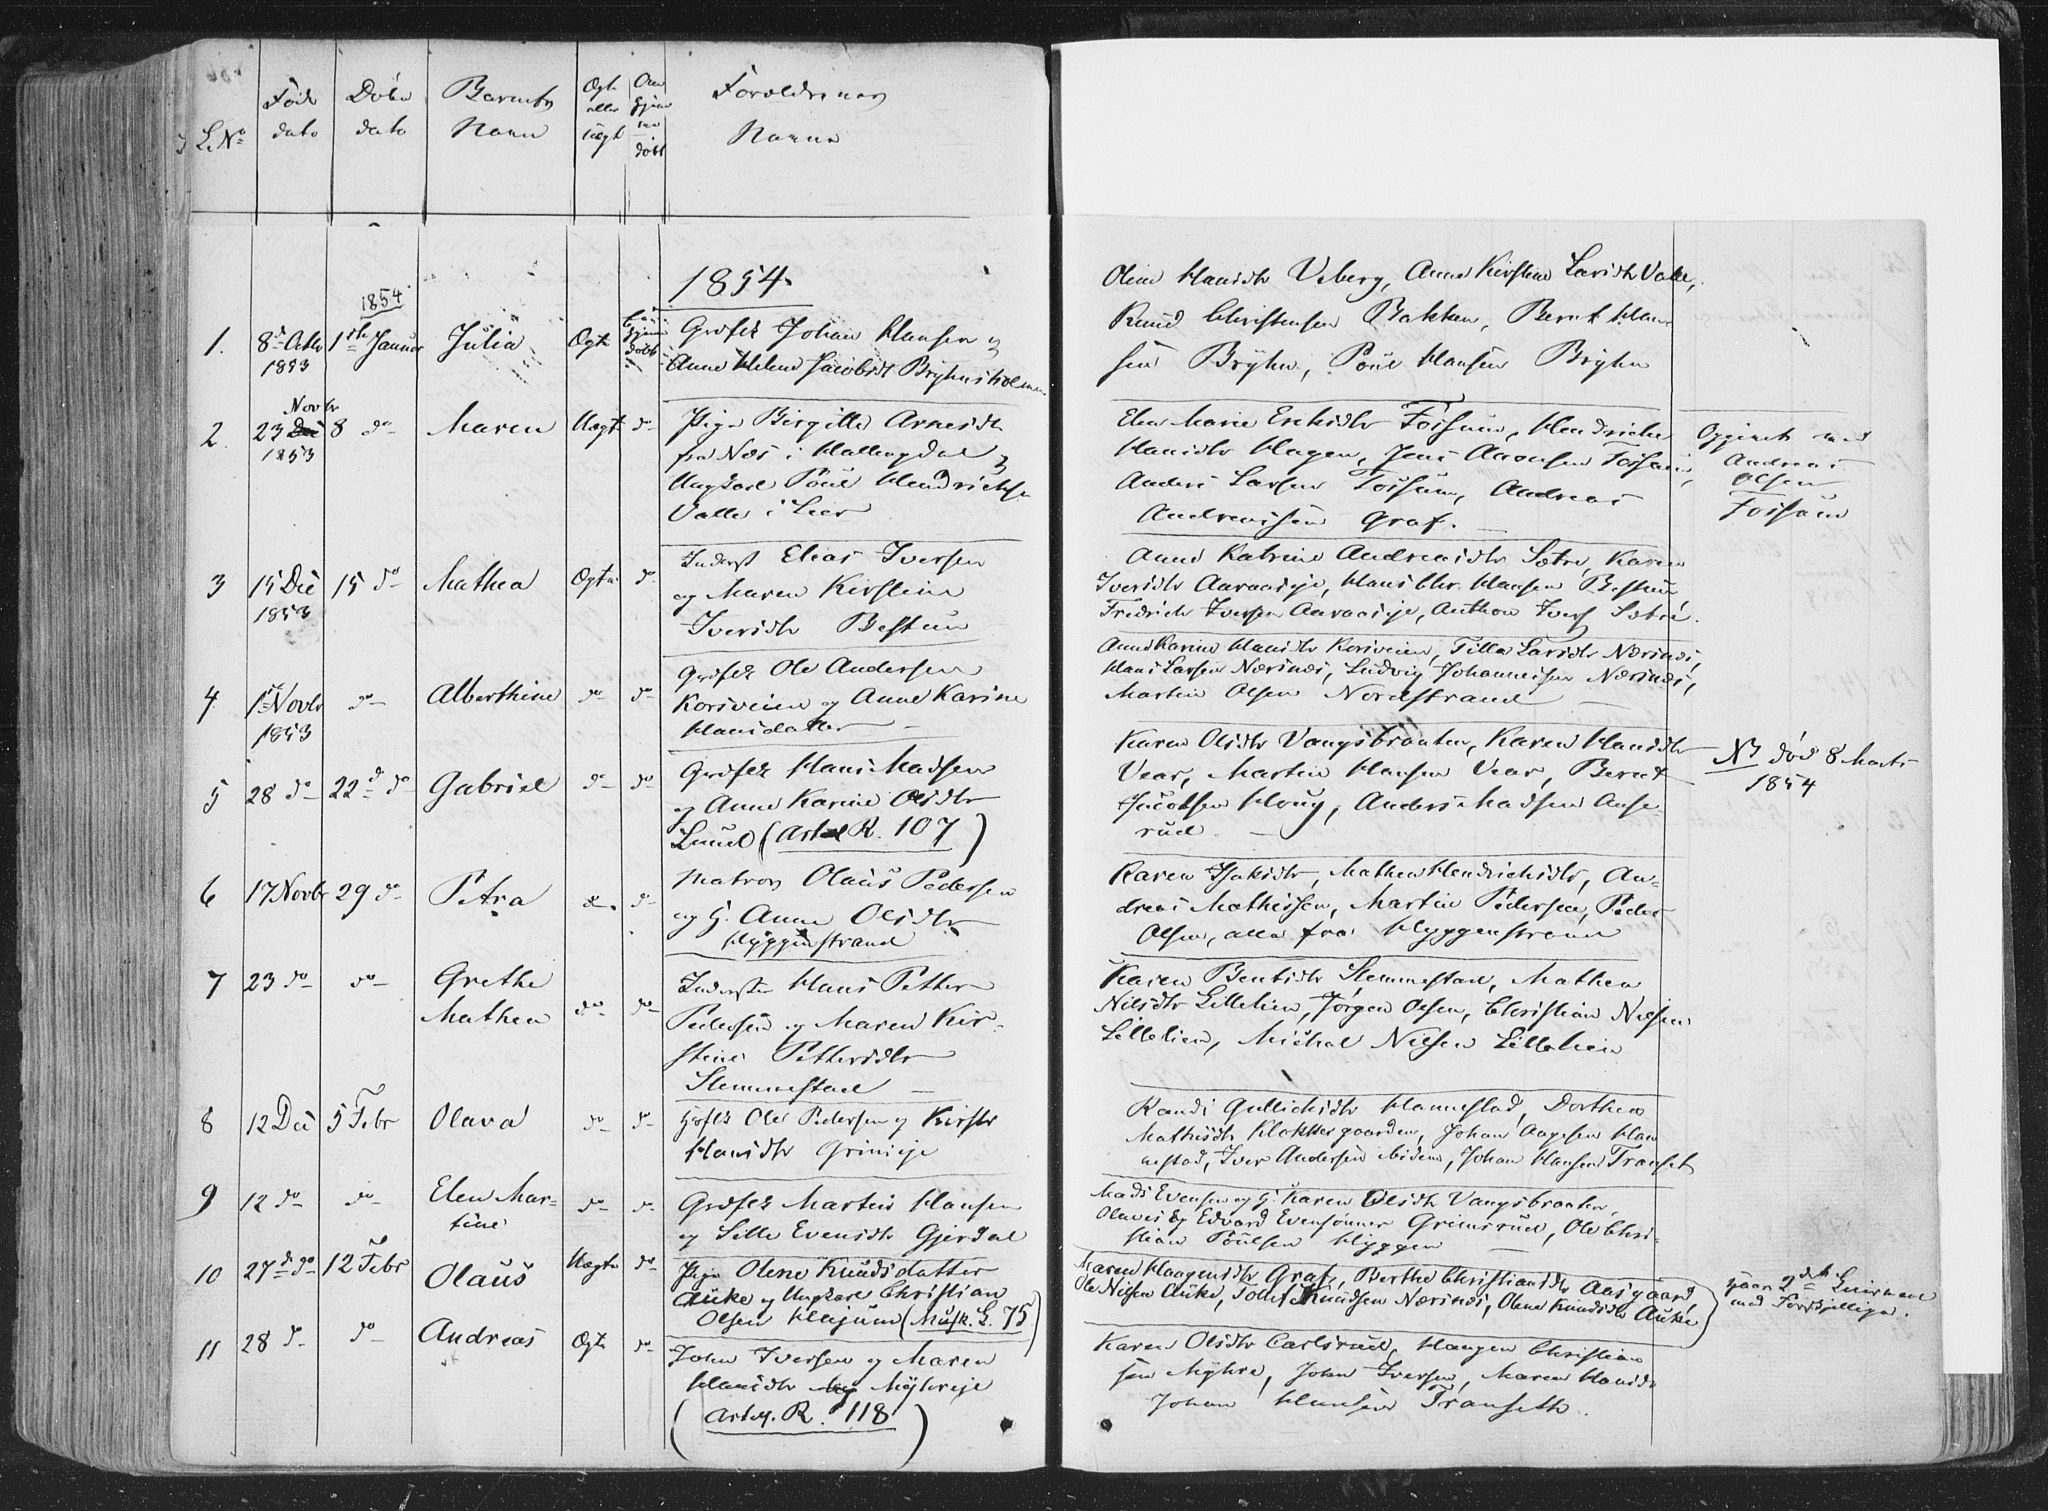 L. No
Føds
dato
Døbs
dato
Barnets
Navn
Ægte
eller
uægt
Om
hjem
me
døbt
Forældrenes
Navne
1854
1. 8de Octbr 1853
1854
1ste Januar
Julia
Ægte
hjemme
døbt
Grdfk Johan Hansen og
Anne Helene Jacobsdt Bryhnsholmen
Oline Hansdtr Viberg, Anne Kirstine Larsdtr Valle,
Knud Christensen Bakken, Bernt Han-
sen Bryhn, Poul Hansen Bryhn
2. 23 Novbr 1853
8 do
Maren
Uægt
do
Pige Birgitte Arnesdtr
fra Næs i Hallingdal og
Ungkarl Poul Hendrichs.
Valle i Lier
Elen Marie Erichsdtr Fossum, Hendriche
Hansdtr Hagen, Jens Aronsen Fossum,
Anders Larsen Fossum, Andreas
Andreassen Graf.
Opgivet ved
Andreas
Olsen
Fossum
3 15 Dec 1853
15 do
Mathea
Ægte
do
Inderst Elias Iversen
og Maren Kirstine
Iversdtr Bestum
Anne Katrine Andreasdtr Sætre, Karen
Iversdtr Aaraaseje, Hans Chr. Hansen Bestum
Fredrich Iversen Aaraaseje, Anthon Ivers Sætre.
4. 1 Novbr 1853
do
Alberthine
do
do
Grdfk Ole Andersen
Korsveien og Anne Karine
Hansdatter
Anne Karine Hansdtr Korsveien, Tilla Larsdtr Nærsnes,
Hans Larsen Nærsnes, Ludvig Johannesen Nærsnes,
Martin Olsen Nordstrand
5 28 do
22 d do
Gabriel
do
do
Grdfk Hans Madsen
og Anne Karine Olsdtr
Lund (Artel R. 107)
Karen Olsdtr Vangsbraaten, Karen Hansdtr
Vear, Martin Hansen Vear, Bernt
Jacobsen Houg, Anders Madsen Aase-
rud
NB død 8 Marts
1854
6 17 Novbr
29 do
Petra
do
do
Matros Olaus Pedersen
og H. Anne Olsdtr
Hyggenstrand
Karen Isaksdtr, Mathea Hendrichsdtr, An-
dreas Mathissen, Martin Pedersen, Peder
Olsen, alle fra Hyggenstrand
7 23 do
do
Grethe
Mathea
do
do
Inderste Hans Petter
Pedersen og Maren Kir-
stine Pettersdtr
Slemmestad
Karen Berntsdtr Slemmestad, Mathea
Nilsdtr Lillelien, Jørgen Olsen, Christian Nilsen
Lillelien, Michal Nilsen Lillelien
8 12 Dec
5 Febr
Olava
do
do
Grdfk Ole Pedersen og Kirsti
Hansdtr Grinieje
Randi Gullichsdtr Hannestad, Dorthea
Mathisdtr Klokkergaarden, Johan Aagesen Han
nestad, Iver Andersen ibidem, Johan Hansen Transet
9 12 do
do
Elen Mar-
tine
do
do
Grdfk Martin Hansen
og Sille Evensdtr Gjerdal
Mads Evensen og H. Karen Olsdtr Vangsbraaten,
Olaves og Edvard Evensønner Grimsrud, Ole Chri-
stian Poulsen Hyggen
10 27 d do
12 Febr
Olaus
Uægte
do
Pige Olene Knudsdatter
Auke og Ungkarl Christian
Olsen Hejum (Musk. L. 75)
Maren Haagensdtr Graf, Berthe Christiansdtr Aasgaard
Ole Nilsen Auke, Josef Knudsen Nærsnes, Olene Knudsdtr Auke
hans 2det Leiermaal
med Forskjellige.
11 28 do
do
Andreas
Ægte
do
John Iversen og Maren
Hansdtr Myhreje
(Artely. R. 118)
Karen Olsdtr Carlsrud, Haagen Christian
sen Myhre, John Iversen, Maren Hansdtr
Johan Hansen Transeth.